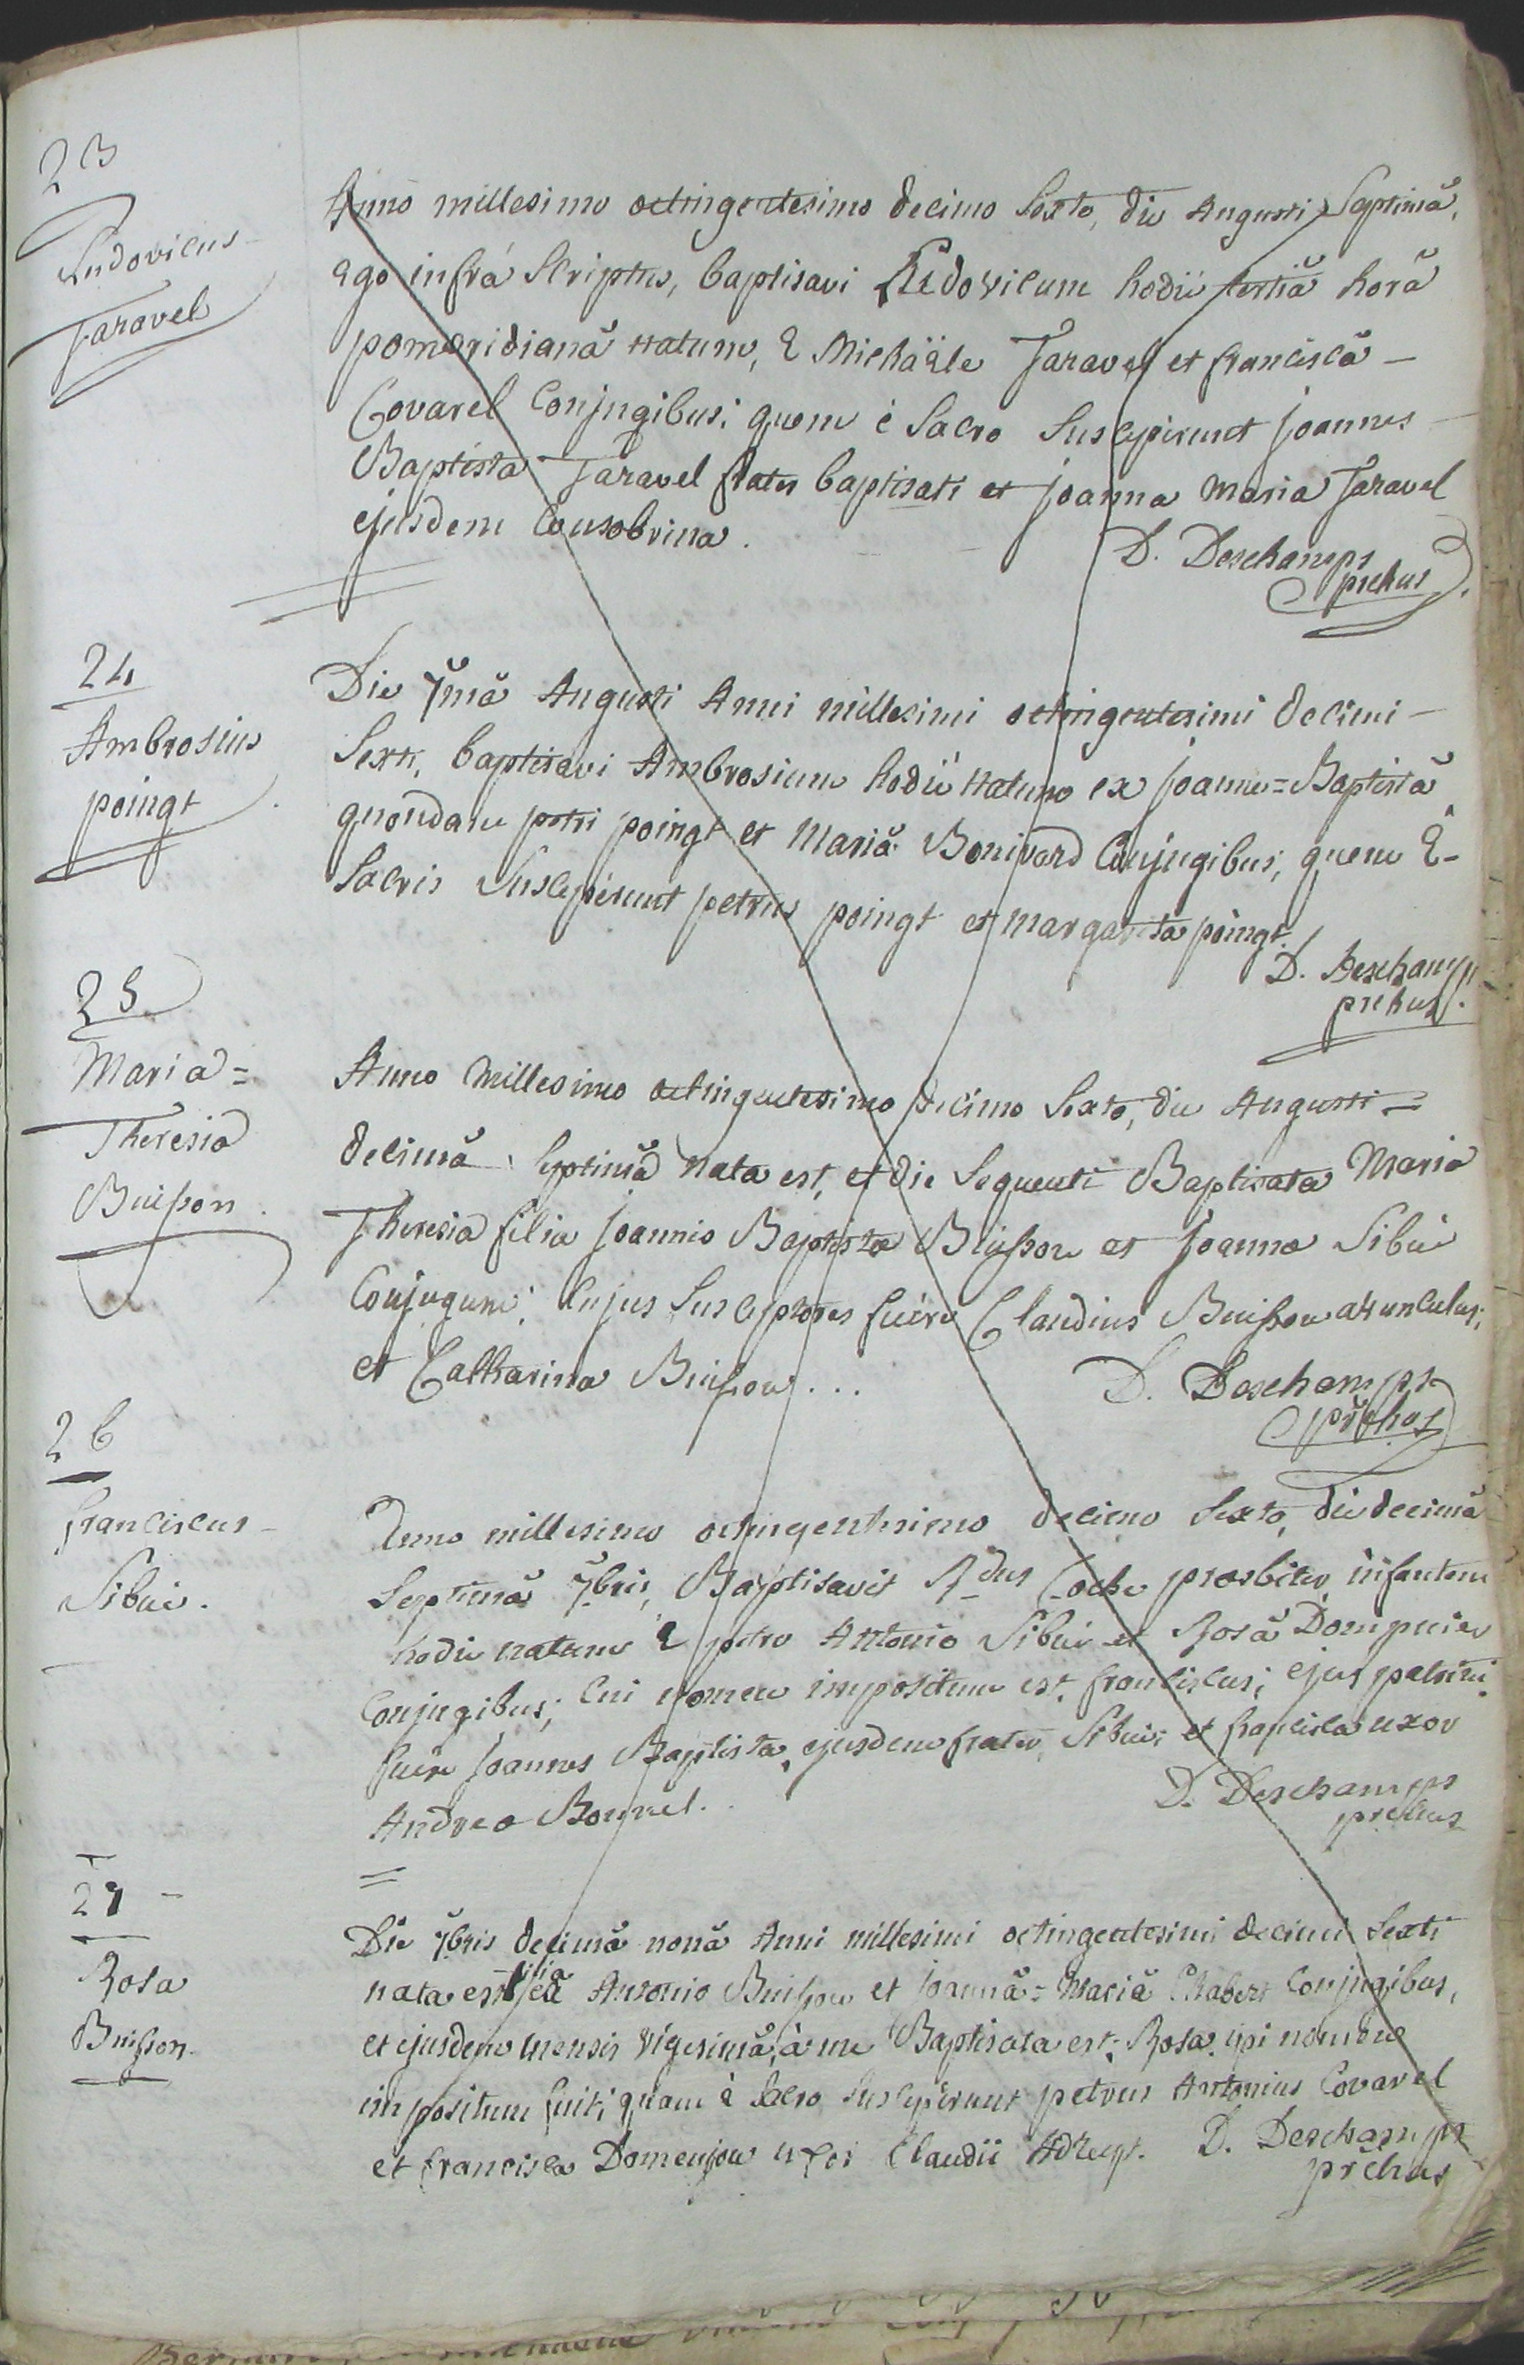 23
Ludovicus
Jaravel
Anno millesimo octingentesimo decimo Sexto, die Augusti Septimâ,
ego infrá Scriptus, baptisavi Ludovicum hodiè tertiâ horâ
pomeridianâ natum, è Michaële Jaravel et franciscâ
Covarel Conjugibus; quem é Sacro Susceperunt joannes
Baptista Jaravel frater baptisati et joanna maria Jaravel
ejusdem Consobrina.
D. Deschamps
prchus
24
Ambrosius
poingt
Die 7mâ Augusti Anni millesimi octingentesimi decimi
Sexti, baptisavi Ambrosium hodiè natum ex joanne=Baptistâ
quondam petri poingt et mariâ Bonivard Conjugibus, quem è
Sacris Susceperunt petrus poingt et margarita poingt.
D. Deschamps
prchus.
25
Maria=
Theresia
Buisson.
Anno millesimo octingentesimo decimo Sexto, die Augusti=
decimâ Septimâ nata est, et die Sequenti Baptisata Maria
Theresia filia joannis Baptistæ Buisson et joannæ Sibué
Conjugum; Cujus Susceptores fuére Claudius Buisson avunculus;
et Catharina Buisson...
D. Deschamps
prchus
26
franciscus
Sibué.
Anno millesimo octingentesimo decimo Sexto, die decimâ
Septimâ 7bris, Baptisavit Rdus Coche præsbiter infantem
hodie natum è petro Antonio Sibué et Rosâ Dompnier
Conjugibus; Cui nomen impositum est, franciscus; ejus patrini
fuére joannes Baptista, ejusdem frater, Sibué; et francisca uxor
Andreæ Bonnel.
D. Deschamps
prchus
27
Rosa
Buisson.
Die 7bris decimâ nonâ Anni millesimi octingentesimi decimi Sexti
nata est filia ex Antonio Buisson et joannâ=Mariâ Chabert Conjugibus,
et ejusdem mensis vigesimâ, à me Baptisata est; Rosa ipsi nomen
impositum fuit; quam è Sacro Susceperunt petrus Antonius Covarel
et francisca Domenjon uxor Claudii
D. Deschamps
prchus